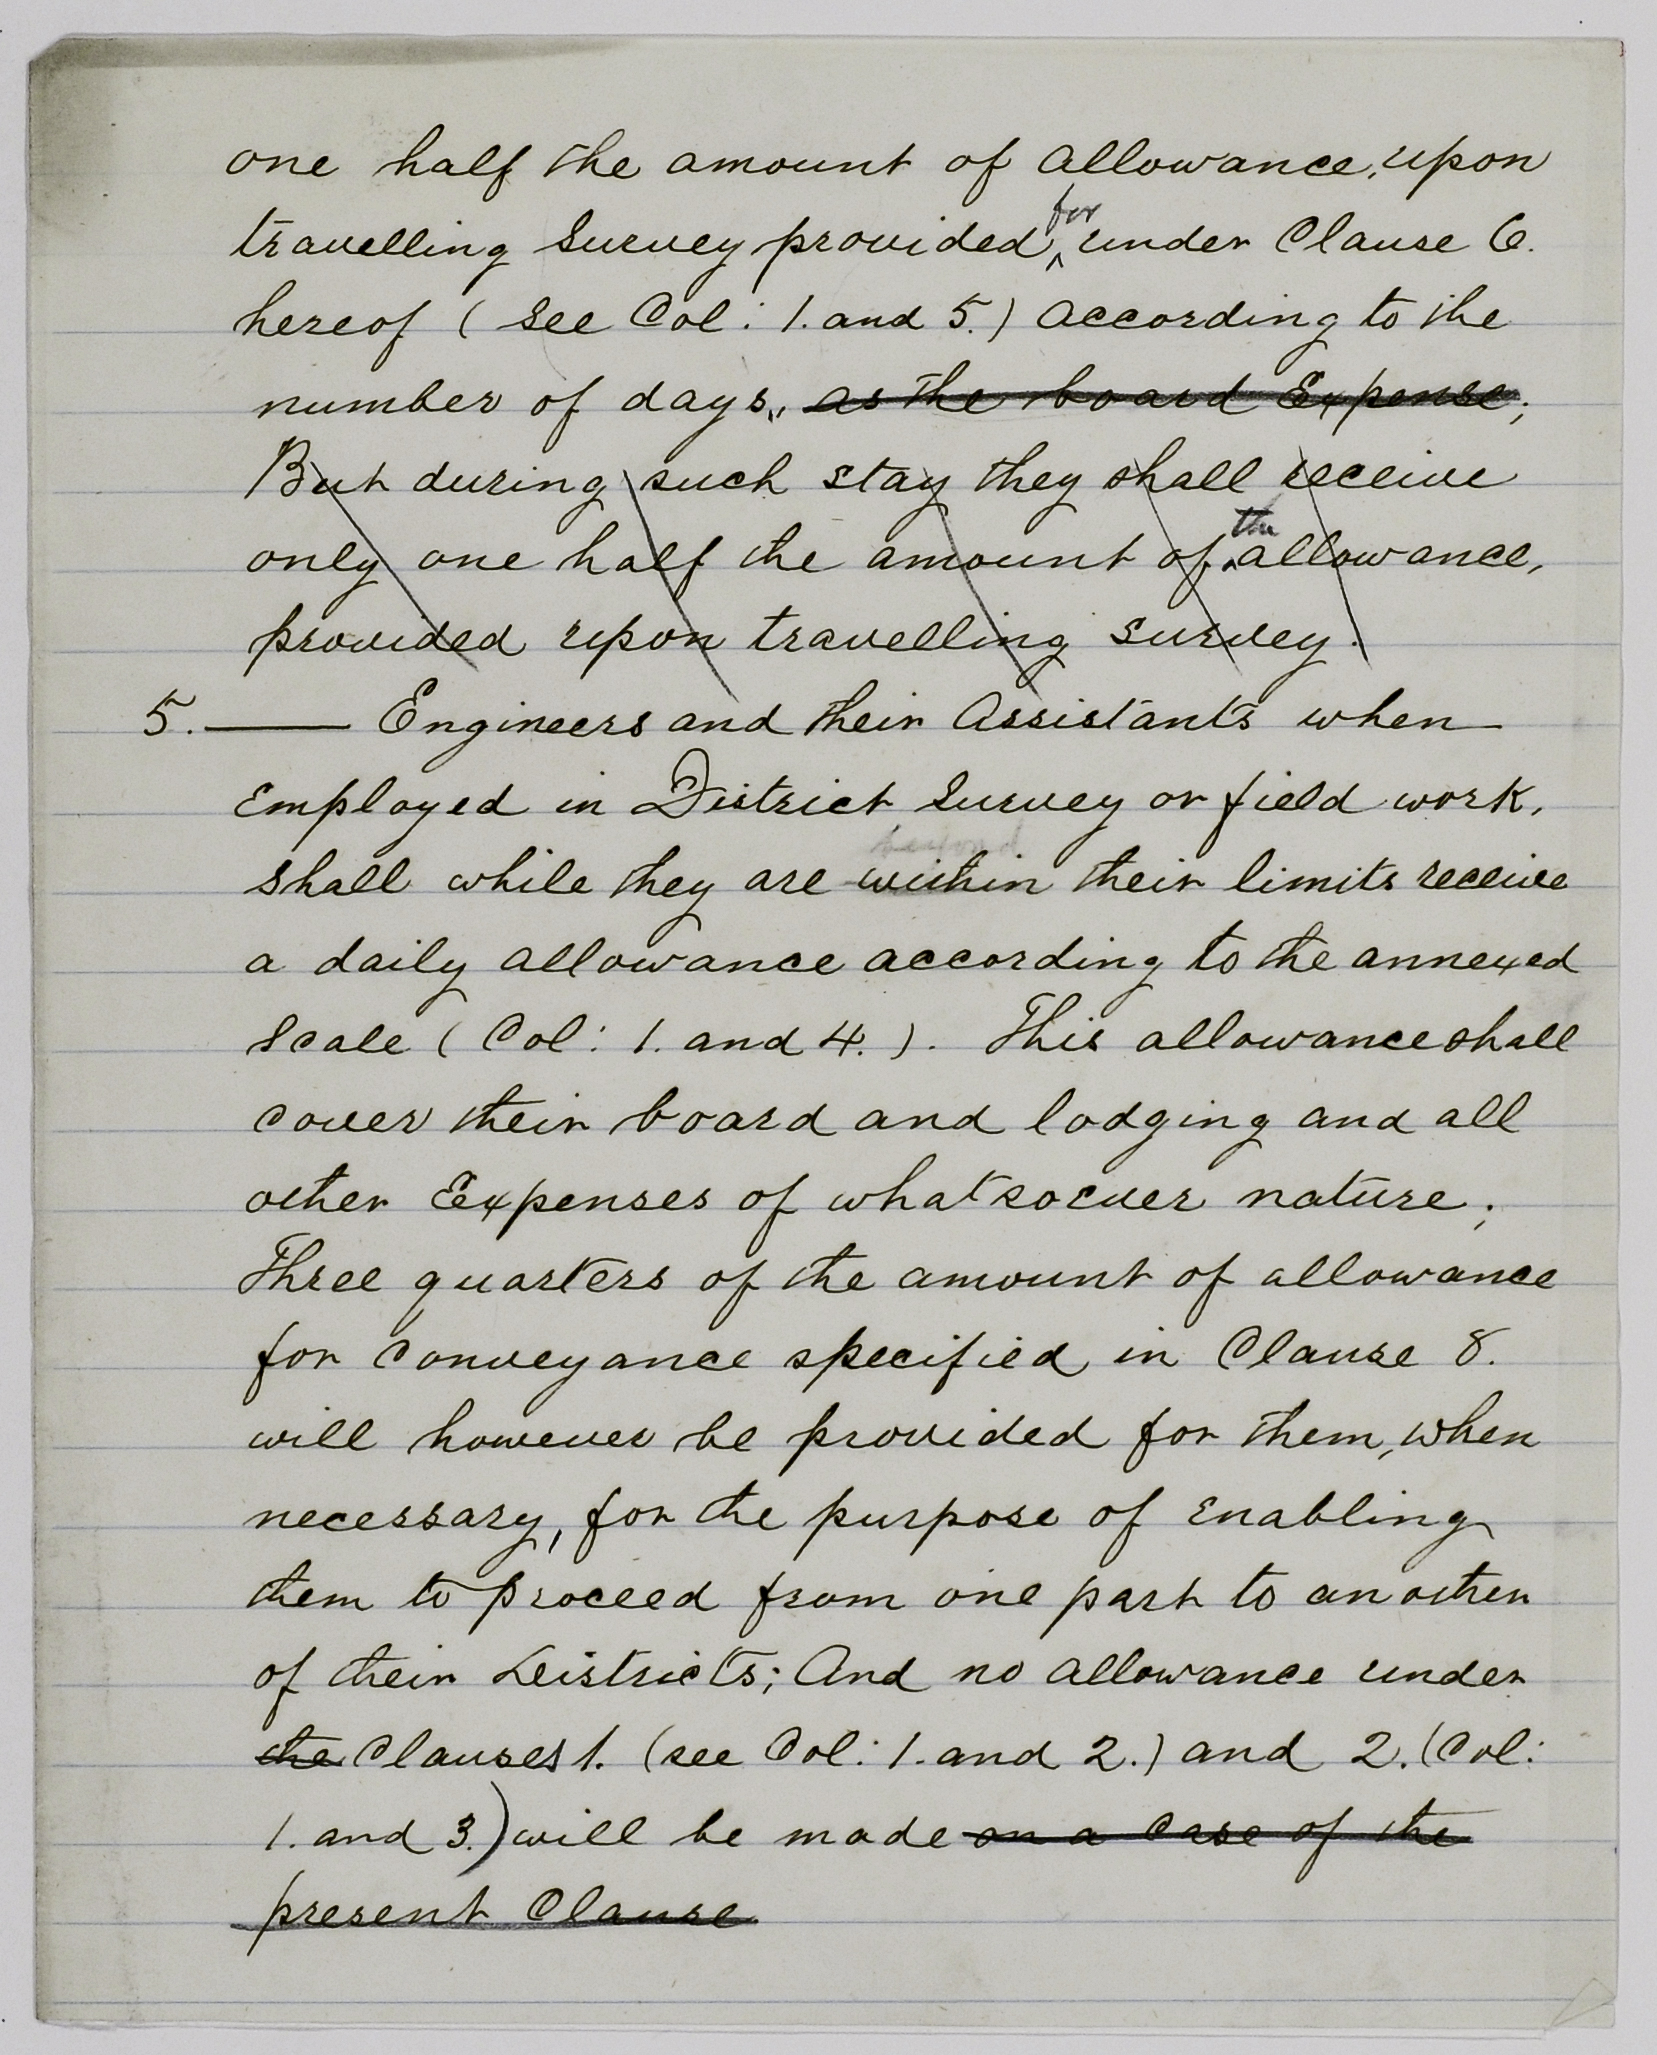 one half the amount of allowance, upon
travelling Survey provided for under Clause 6.
hereof (See Col: 1. and 5.) according to the
number of days, as the board Expense;
But during such stay they shall receive
only one half the amount of the allowance,
provided upon travelling Survey.
5. — Engineers and their Assistants when
Employed in District Survey or field work,
beyond
shall while they are within their limits receive
a daily allowance according to the annexed
Scale (Col: 1. and 4.). This allowance shall
cover their board and lodging and all
other Expenses of whatsoever nature;
Three quarters of the amount of allowance
for conveyance specified in Clause 8.
will however be provided for them, when
necessary, for the purpose of Enabling
them to proceed from one part to another
of their Districts; And no allowance under
the Clauses 1. (see Col: 1. and 2.) and 2. (Col:
1. and 3.) will be made on a Case of the
present Clause